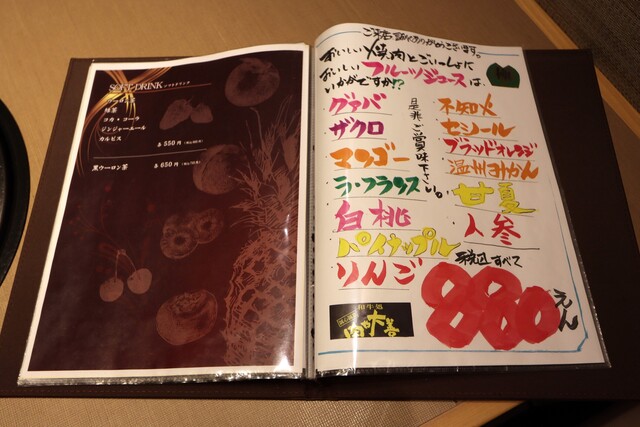 SOFT DRINK ソフトドリンク
緑茶
コカ・コーラ
ジンジャーエール
カルピス
各 550 円
黒ウーロン茶
各 650 円
ご来店誠にありがとうございます。
おいしい焼肉とごいっしょに
おいしいフルーツジュースは、
いかがですか!?
是非ご賞味下さい。
グァバ
ザクロ
マンゴー
ラ・フランス
白桃
パイナップル
りんご
不知火
セミノール
ブラッドオレンジ
温州みかん
甘夏
人参
税込すべて
880えん
和牛処
肉や大善